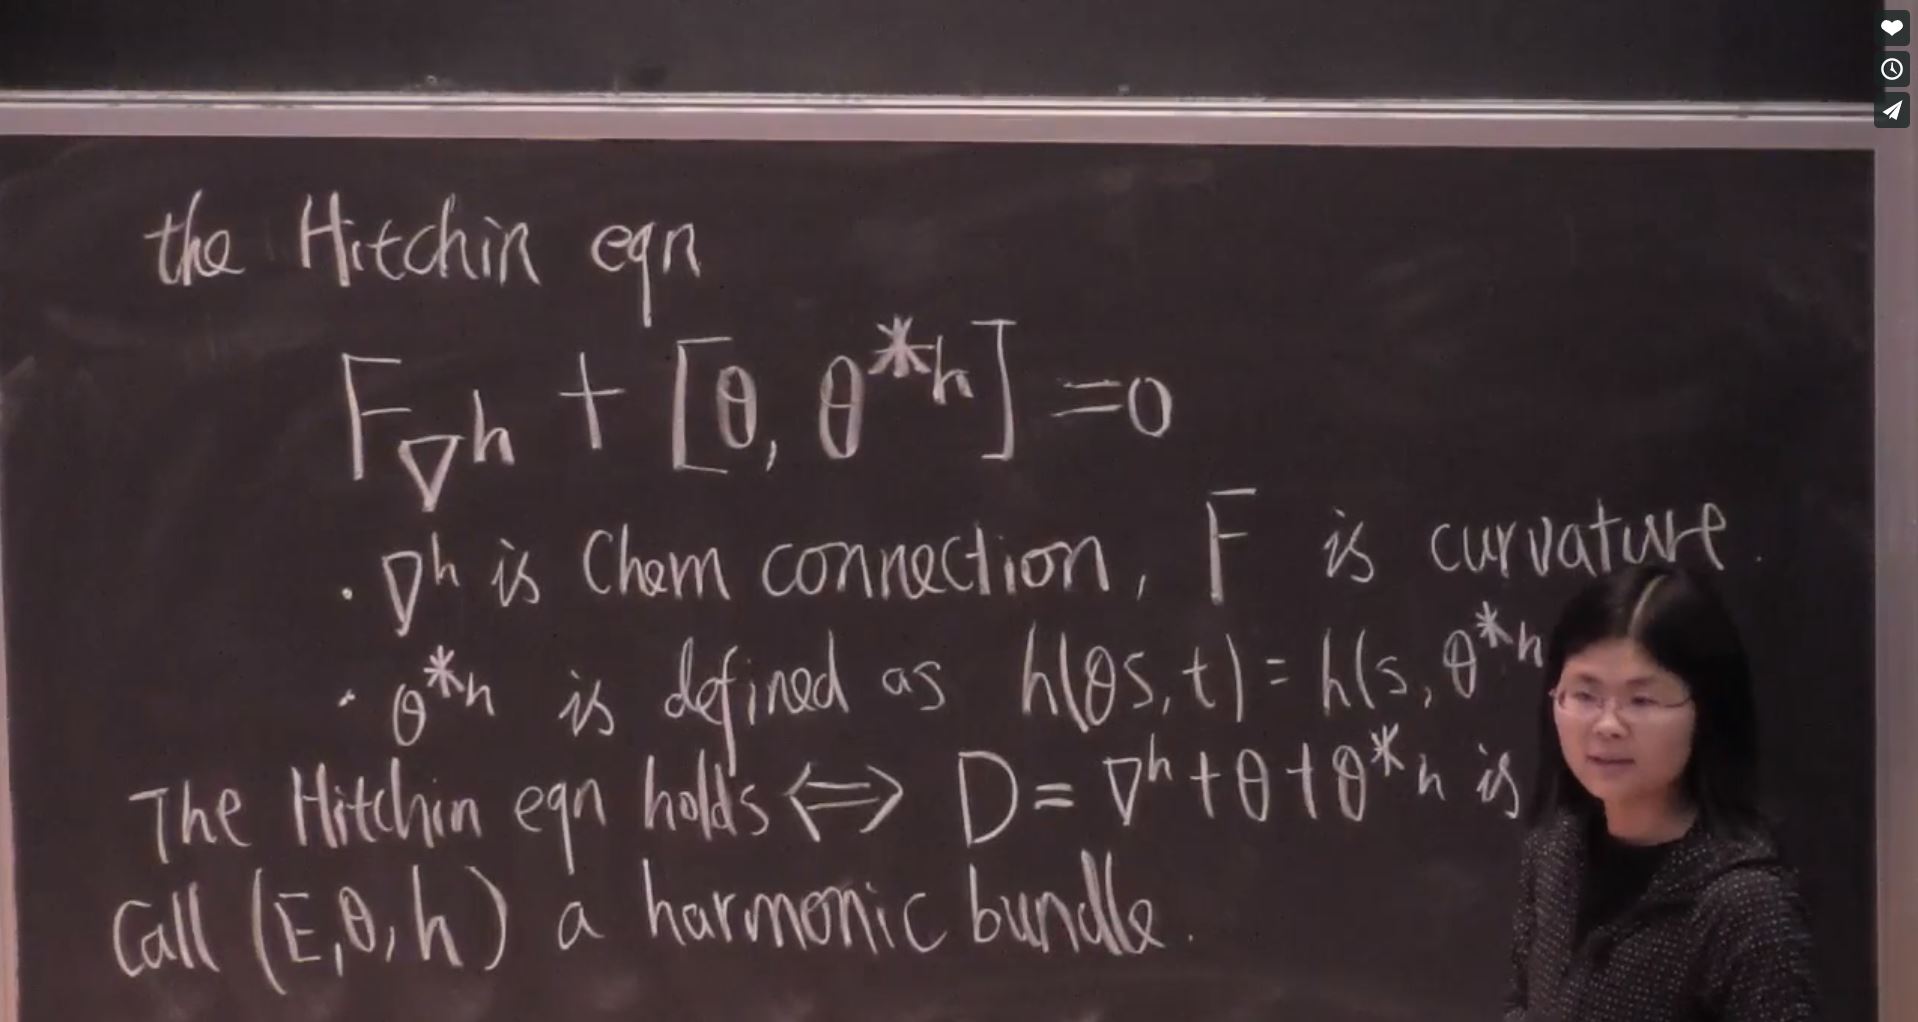 the Hitchin eqn
F_{∇^h} + [θ, θ^{*h}] = 0
· ∇^h is Chern connection, F is curvature.
· θ^{*h} is defined as h(θs, t) = h(s, θ^{*h}
The Hitchin eqn holds ⟺ D = ∇^h + θ + θ^{*h} is
Call (E, θ, h) a harmonic bundle.